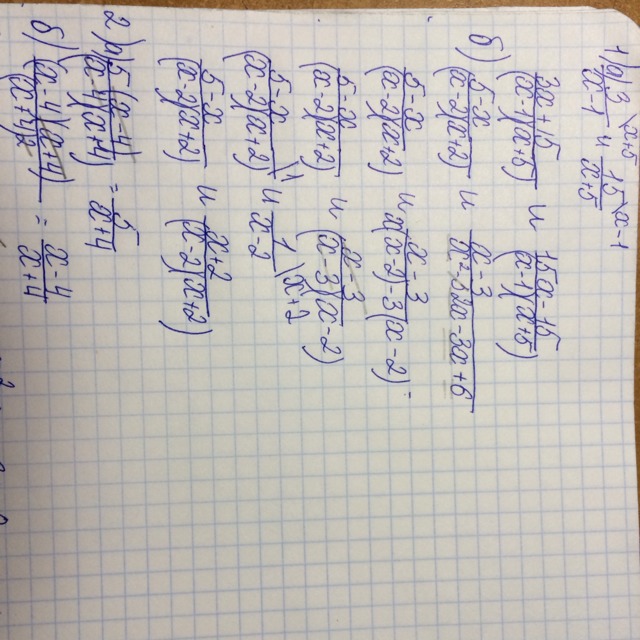 1) а) 3/(x-1) \x+5 и 15/(x+5) \x-1
(3x+15)/((x-1)(x+5)) и (15x-15)/((x-1)(x+5))
б) (5-x)/((x-2)(x+2)) и (x-3)/(x²-2x-3x+6)
(5-x)/((x-2)(x+2)) и (x-3)/(x(x-2)-3(x-2))
(5-x)/((x-2)(x+2)) и (x-3)/((x-3)(x-2))
(5-x)/((x-2)(x+2)) \1 и 1/(x-2) \x+2
(5-x)/((x-2)(x+2)) и (x+2)/((x-2)(x+2))
2) а) 5(x-4)/((x-4)(x+4)) = 5/(x+4)
б) (x-4)(x+4)/(x+4)² = (x-4)/(x+4)